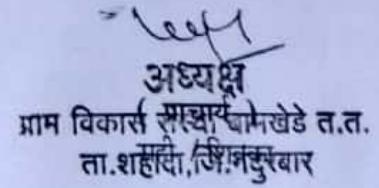 अध्यक्ष
ग्राम विकास संस्था बामखेडे त.त.
ता.शहादा,जि.नंदुरबार